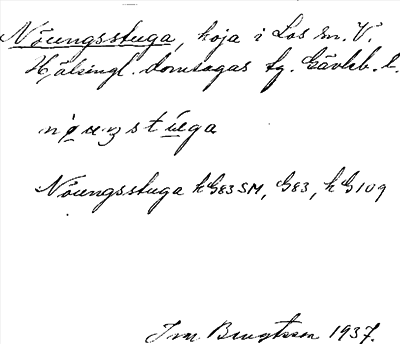 Nöungsstuga, koja i Los sn. V.
Hälsingl. domsagas tg. Gävleb. l.
Nöungsstuga k G83 SM, G83, k G109
Jvn Bengtsson 1937.